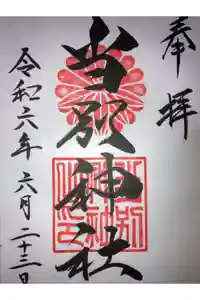 奉拝
当別神社
令和六年六月二十三日